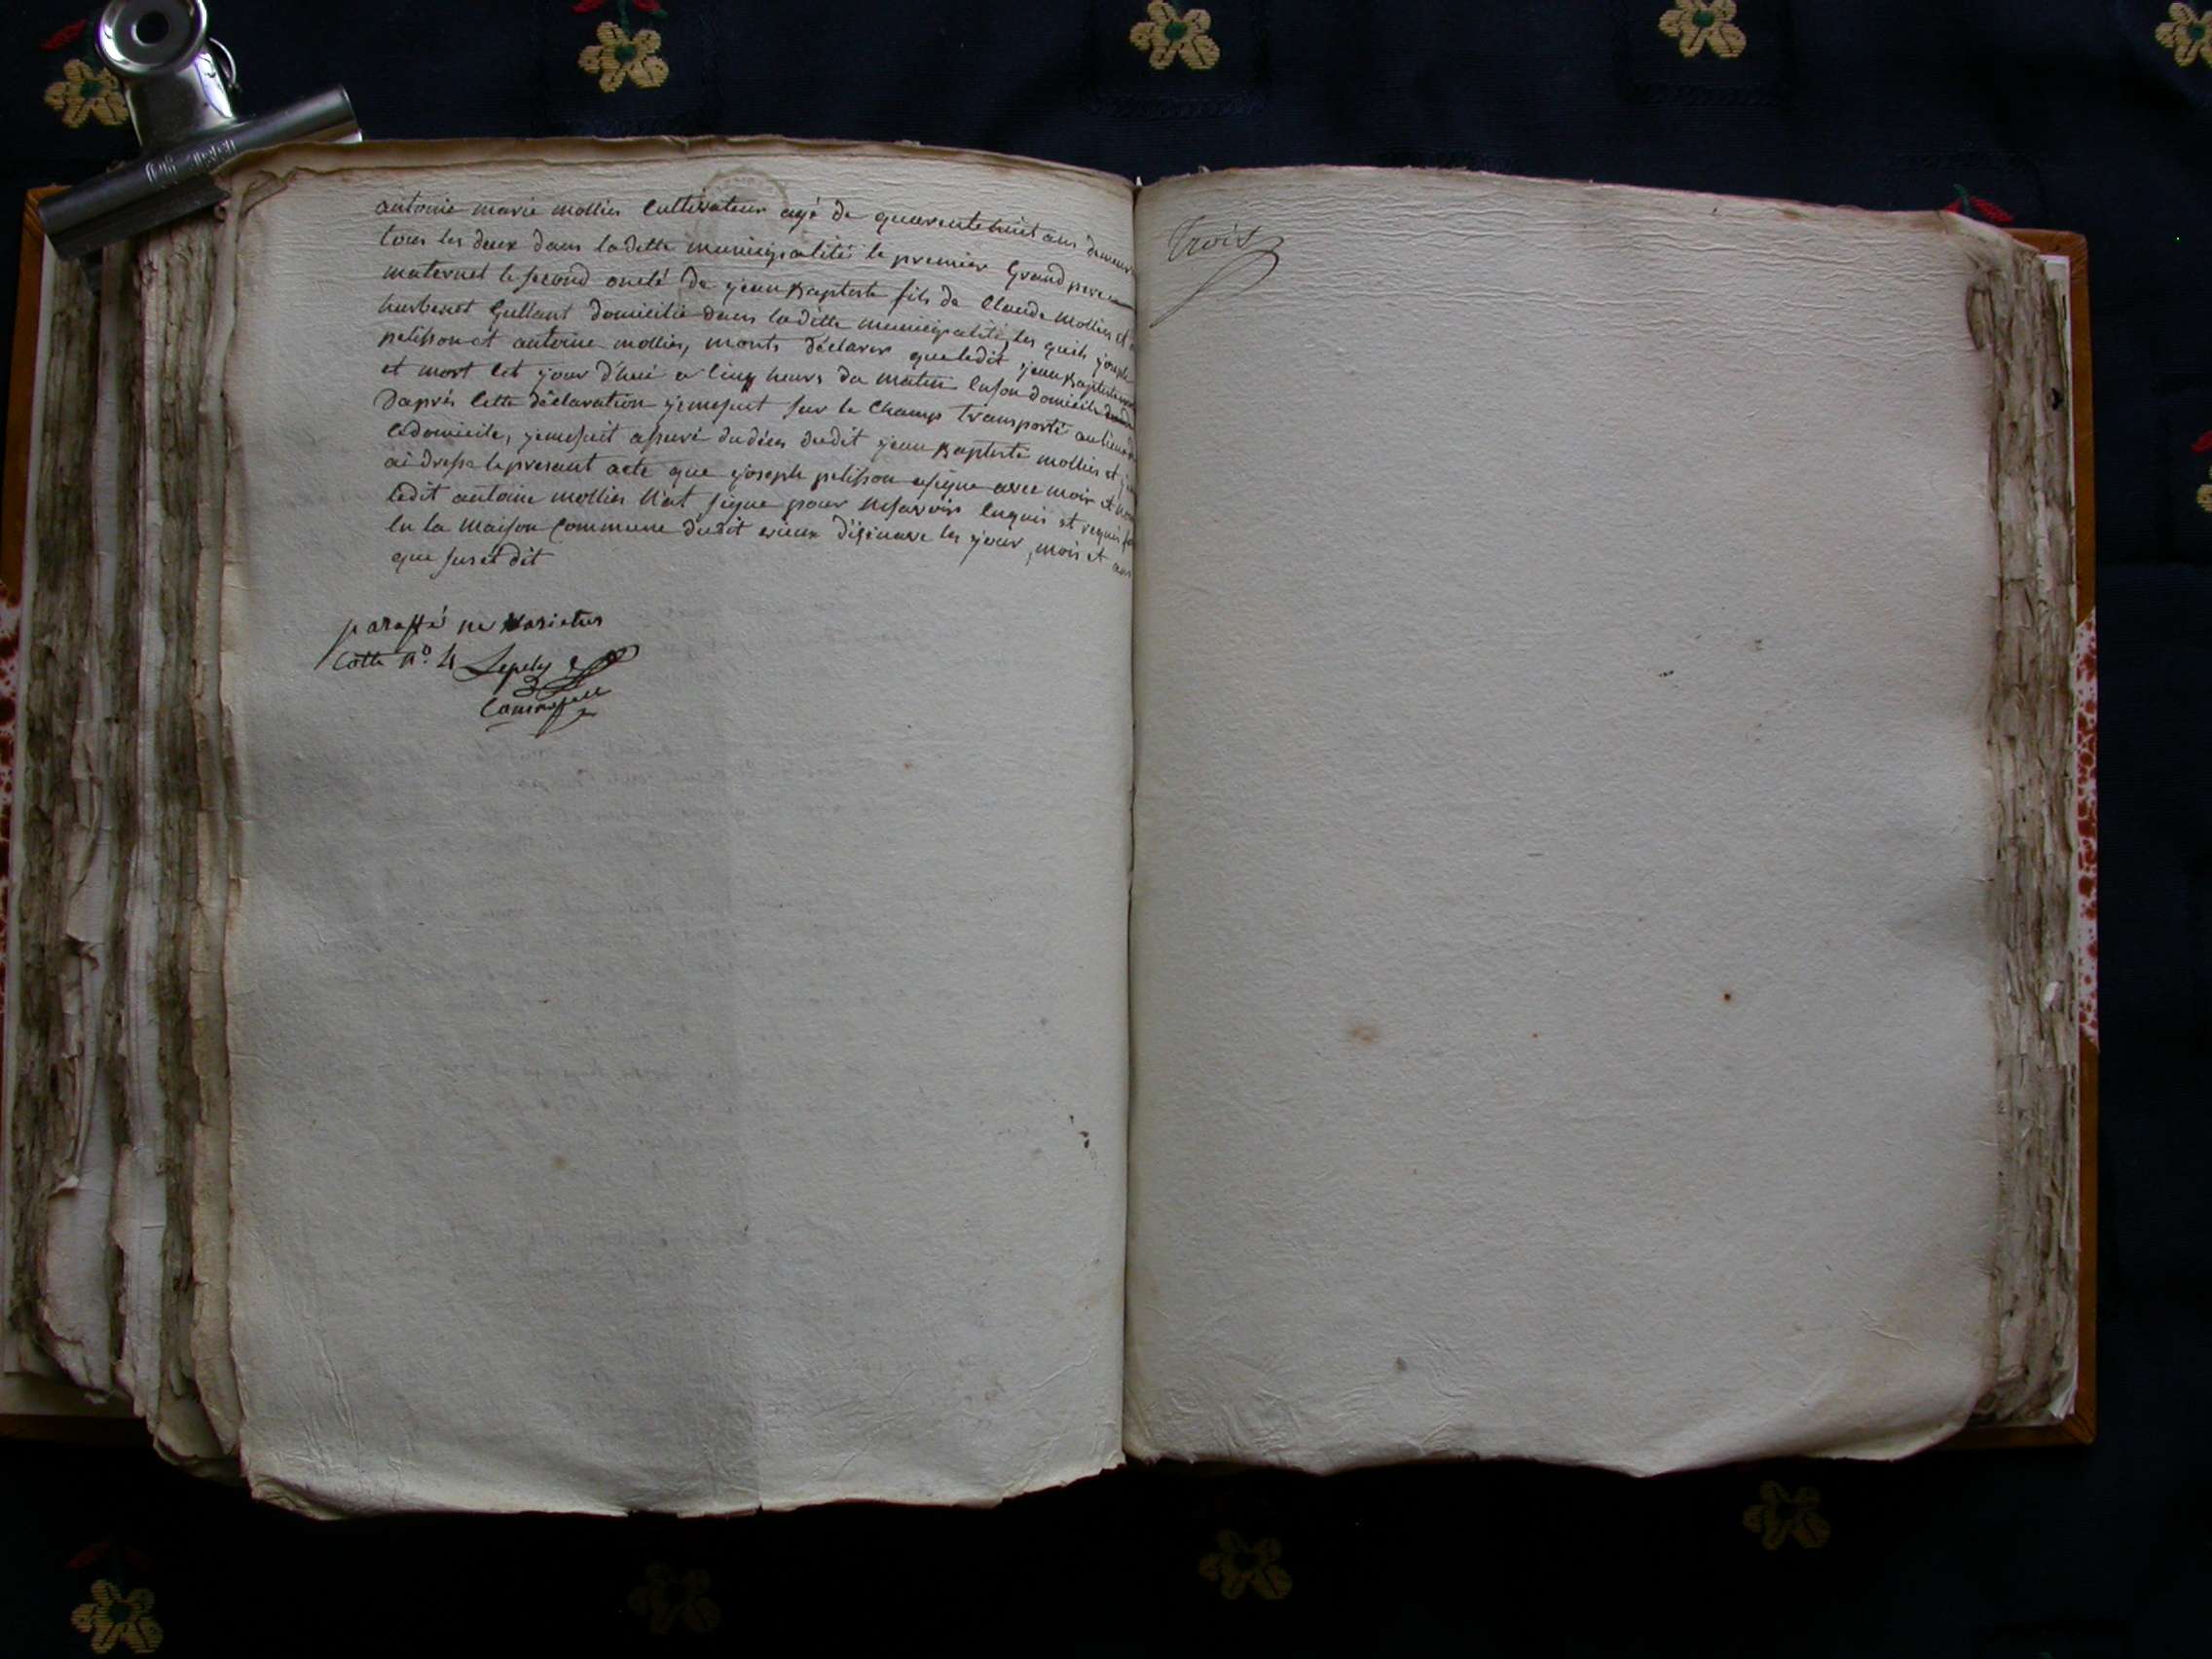 antoine marie mollier Cultivateur agé de quarente huit ans
tous les deux dans laditte municipalité le premier Grand pere
maternel le second oncle de jean Baptiste fils de Claude Mollier et
domicilié dans laditte municipalité, les quels joseph
pelisson et antoine mollier, monts déclarer que ledit jean Baptiste
et mort cet jour d'hui a cinq heurs du matin en son domicile
D'aprés cette déclaration je me suit sur le Champ transporté au lieu
ce domicile, je me suit assuré du déces dudit jean Baptiste mollier et
ai dresse le present acte que joseph pelisson a signe avec moi et non
ledit antoine mollier n'at signe pour ne savoir enquis et requis
en la maison Commune dudit les jour, mois et an
que sus et dit
paraffé ne Varietur
Cotte n° 4
Trois